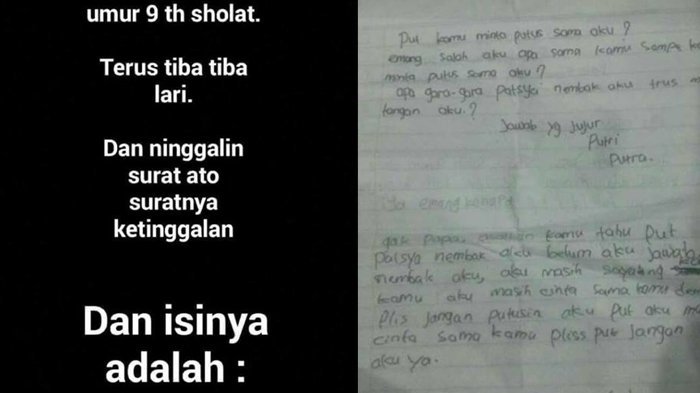 umur 9 th sholat.
Terus tiba tiba
lari.
Dan ninggalin
surat ato
suratnya
ketinggalan
Dan isinya
adalah :
Put kamu minta putus sama aku ?
emang salah aku apa sama kamu sampe
minta putus sama aku ?
apa gara-gara Patsya nembak aku trus
tangan aku. ?
Jawab yg jujur
Putri
Putra.
Ya emang kenapa
gak papa kamu tahu put
Patsya nembak aku belum aku jawab
nembak aku, aku masih sayang
kamu aku masih cinta sama kamu
Plis jangan putusin aku Put aku
cinta sama kamu pliss put jangan
aku ya.